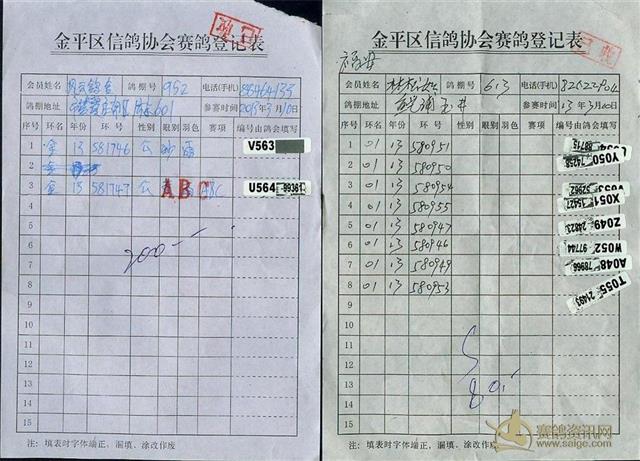 金平区信鸽协会赛鸽登记表
会员姓名 鸽棚号 952 电话(手机) 88464133
鸽棚地址 601 参赛时间 2013年3月10日
序号 环名 年份 环号 性别 眼别 羽色 赛项 编号由鸽会填写
1 金 13 581746 公 砂 雨 V563
2 金
3 金 13 581747 公 ABC ABC U564 -99381
4
5
6
7
8
9
10
11
12
13
14
15
200-
注：填表时字体端正，漏填、涂改作废
金平区信鸽协会赛鸽登记表
会员姓名 鸽棚号 613 电话(手机)
鸽棚地址 参赛时间 13年3月10日
序号 环名 年份 环号 性别 眼别 羽色 赛项 编号由鸽会填写
1 01 13 580951 88715
2 01 13 580950 Y050 74258
3 01 13 580954 52962
4 01 13 580955 X051 15427
5 01 13 580947 Z049 24823
6 01 13 580946 W052 97744
7 01 13 580949 A048 78966
8 01 13 580953 T055 21493
9
10
11
12
13
14
15
注：填表时字体端正，漏填、涂改作废
赛鸽资讯网
www.saige.com